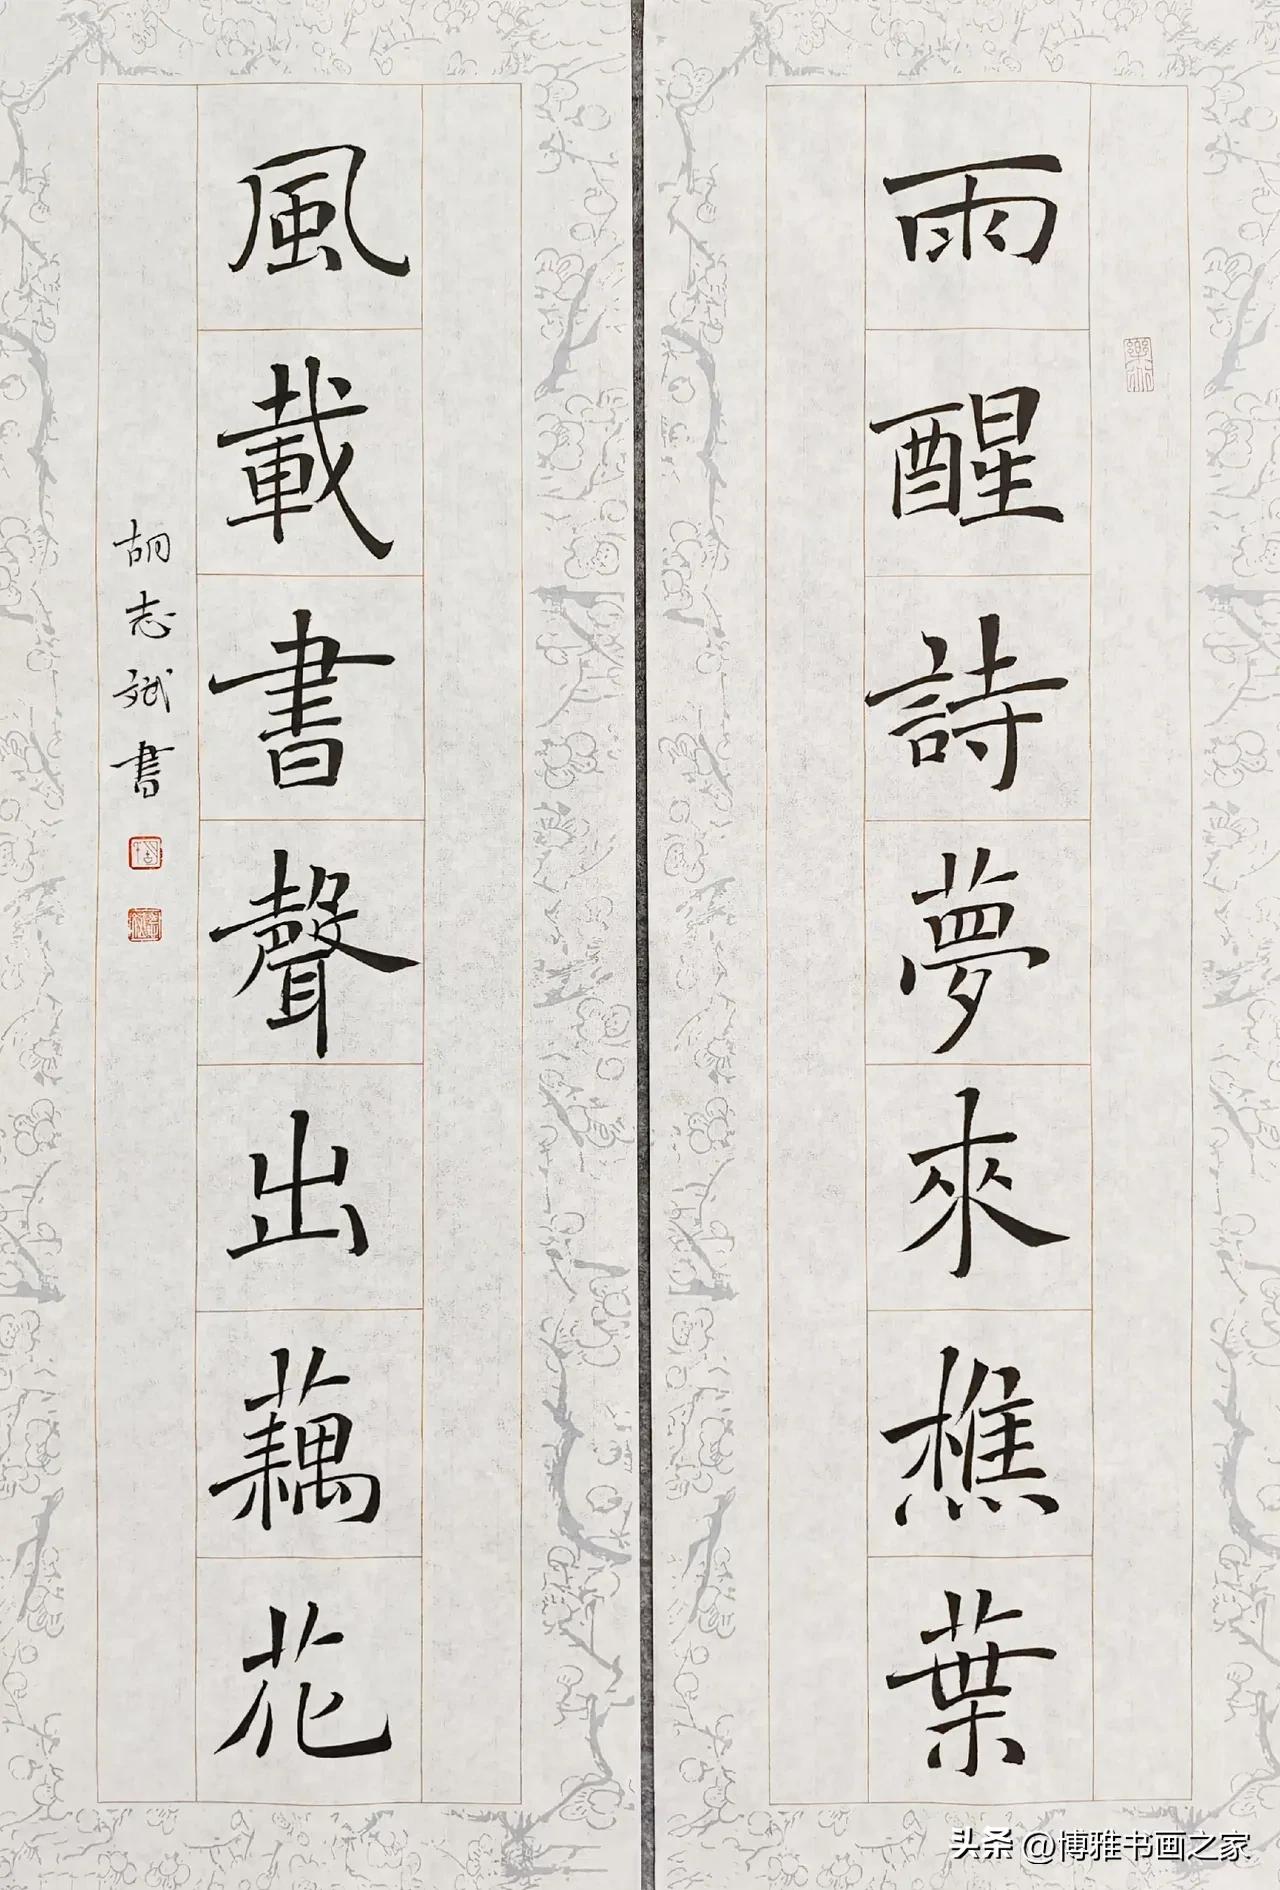 雨醒詩夢來樵葉
風載書聲出藕花
胡志斌書
头条 @博雅书画之家